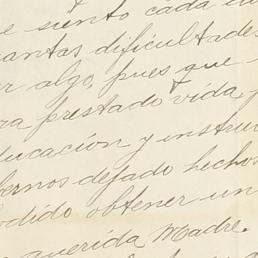 e siento cada
antas dificultades
r algo, pues que
ra prestado vida,
ducación y instru
bernos dejado hechos
odido obtener un
querida Madre.